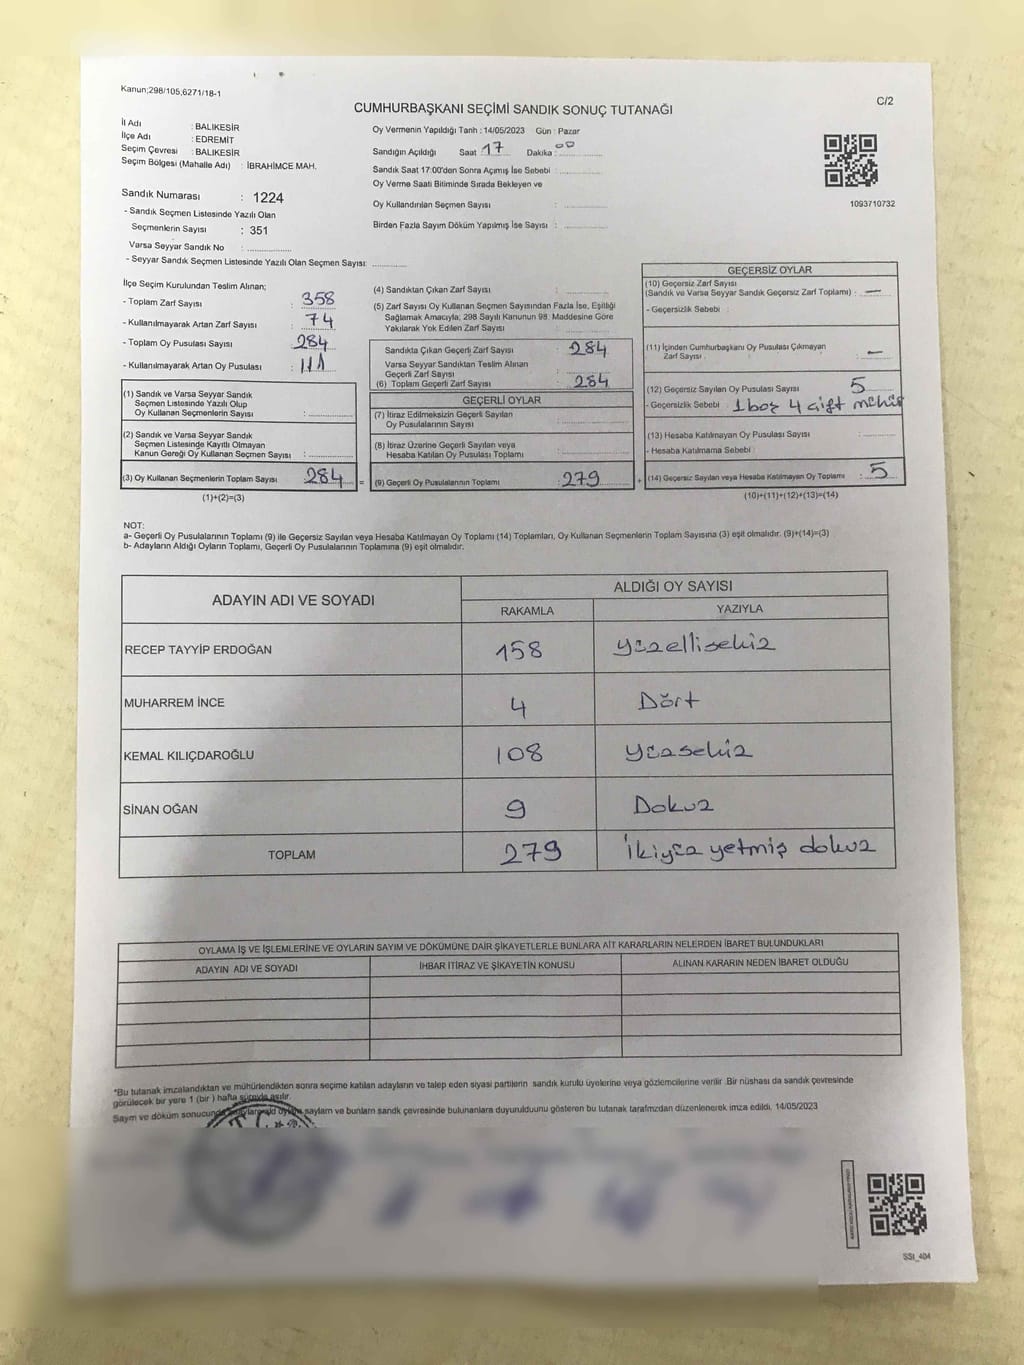 Kanun;298/105,6271/18-1
C/2
CUMHURBAŞKANI SEÇİMİ SANDIK SONUÇ TUTANAĞI
İl Adı : BALIKESİR
İlçe Adı : EDREMİT
Seçim Çevresi : BALIKESİR
Seçim Bölgesi (Mahalle Adı) : İBRAHİMCE MAH.
Sandık Numarası : 1224
- Sandık Seçmen Listesinde Yazılı Olan
Seçmenlerin Sayısı : 351
Varsa Seyyar Sandık No :
- Seyyar Sandık Seçmen Listesinde Yazılı Olan Seçmen Sayısı:
Oy Vermenin Yapıldığı Tarih : 14/05/2023 Gün : Pazar
Sandığın Açıldığı Saat : 17 Dakika : 00
Sandık Saat 17:00'den Sonra Açımış İse Sebebi :
Oy Verme Saati Bitiminde Sırada Bekleyen ve
Oy Kullandırılan Seçmen Sayısı :
Birden Fazla Sayım Döküm Yapılmış İse Sayısı :
1093710732
İlçe Seçim Kurulundan Teslim Alınan;
- Toplam Zarf Sayısı : 358
- Kullanılmayarak Artan Zarf Sayısı : 74
- Toplam Oy Pusulası Sayısı : 284
- Kullanılmayarak Artan Oy Pusulası :
(1) Sandık ve Varsa Seyyar Sandık
Seçmen Listesinde Yazılı Olup
Oy Kullanan Seçmenlerin Sayısı :
(2) Sandık ve Varsa Seyyar Sandık
Seçmen Listesinde Kayıtlı Olmayan
Kanun Gereği Oy Kullanan Seçmen Sayısı :
(3) Oy Kullanan Seçmenlerin Toplam Sayısı : 284 =
(1)+(2)=(3)
(4) Sandıktan Çıkan Zarf Sayısı :
(5) Zarf Sayısı Oy Kullanan Seçmen Sayısından Fazla İse, Eşitliği
Sağlamak Amacıyla; 298 Sayılı Kanunun 98. Maddesine Göre
Yakılarak Yok Edilen Zarf Sayısı :
Sandıkta Çıkan Geçerli Zarf Sayısı : 284
Varsa Seyyar Sandıktan Teslim Alınan
Geçerli Zarf Sayısı :
(6) Toplam Geçerli Zarf Sayısı : 284
GEÇERLİ OYLAR
(7) İtiraz Edilmeksizin Geçerli Sayılan
Oy Pusulalarının Sayısı :
(8) İtiraz Üzerine Geçerli Sayılan veya
Hesaba Katılan Oy Pusulası Toplamı :
(9) Geçerli Oy Pusulalarının Toplamı : 279 +
GEÇERSİZ OYLAR
(10) Geçersiz Zarf Sayısı
(Sandık ve Varsa Seyyar Sandık Geçersiz Zarf Toplamı) : —
- Geçersizlik Sebebi :
(11) İçinden Cumhurbaşkanı Oy Pusulası Çıkmayan
Zarf Sayısı : —
(12) Geçersiz Sayılan Oy Pusulası Sayısı : 5
- Geçersizlik Sebebi : 1boş 4 çift mühür
(13) Hesaba Katılmayan Oy Pusulası Sayısı :
- Hesaba Katılmama Sebebi :
(14) Geçersiz Sayılan veya Hesaba Katılmayan Oy Toplamı : 5
(10)+(11)+(12)+(13)=(14)
NOT:
a- Geçerli Oy Pusulalarının Toplamı (9) ile Geçersiz Sayılan veya Hesaba Katılmayan Oy Toplamı (14) Toplamları, Oy Kullanan Seçmenlerin Toplam Sayısına (3) eşit olmalıdır. (9)+(14)=(3)
b- Adayların Aldığı Oyların Toplamı, Geçerli Oy Pusulalarının Toplamına (9) eşit olmalıdır.
ADAYIN ADI VE SOYADI
ALDIĞI OY SAYISI
RAKAMLA YAZIYLA
RECEP TAYYİP ERDOĞAN 158 yüzellisekiz
MUHARREM İNCE 4 Dört
KEMAL KILIÇDAROĞLU 108 yüzsekiz
SİNAN OĞAN 9 Dokuz
TOPLAM 279 İkiyüz yetmiş dokuz
OYLAMA İŞ VE İŞLEMLERİNE VE OYLARIN SAYIM VE DÖKÜMÜNE DAİR ŞİKAYETLERLE BUNLARA AİT KARARLARIN NELERDEN İBARET BULUNDUKLARI
ADAYIN ADI VE SOYADI İHBAR İTİRAZ VE ŞİKAYETİN KONUSU ALINAN KARARIN NEDEN İBARET OLDUĞU
*Bu tutanak imzalandıktan ve mühürlendikten sonra seçime katılan adayların ve talep eden siyasi partilerin sandık kurulu üyelerine veya gözlemcilerine verilir .Bir nüshası da sandık çevresinde
görülecek bir yere 1 (bir ) hafta süreyle asılır.
Sayım ve döküm sonucunda saylam ve bunların sandk çevresinde bulunanlara duyurulduunu gösteren bu tutanak tarafmzdan düzenlenerek imza edildi. 14/05/2023
T.C.
SSI_404